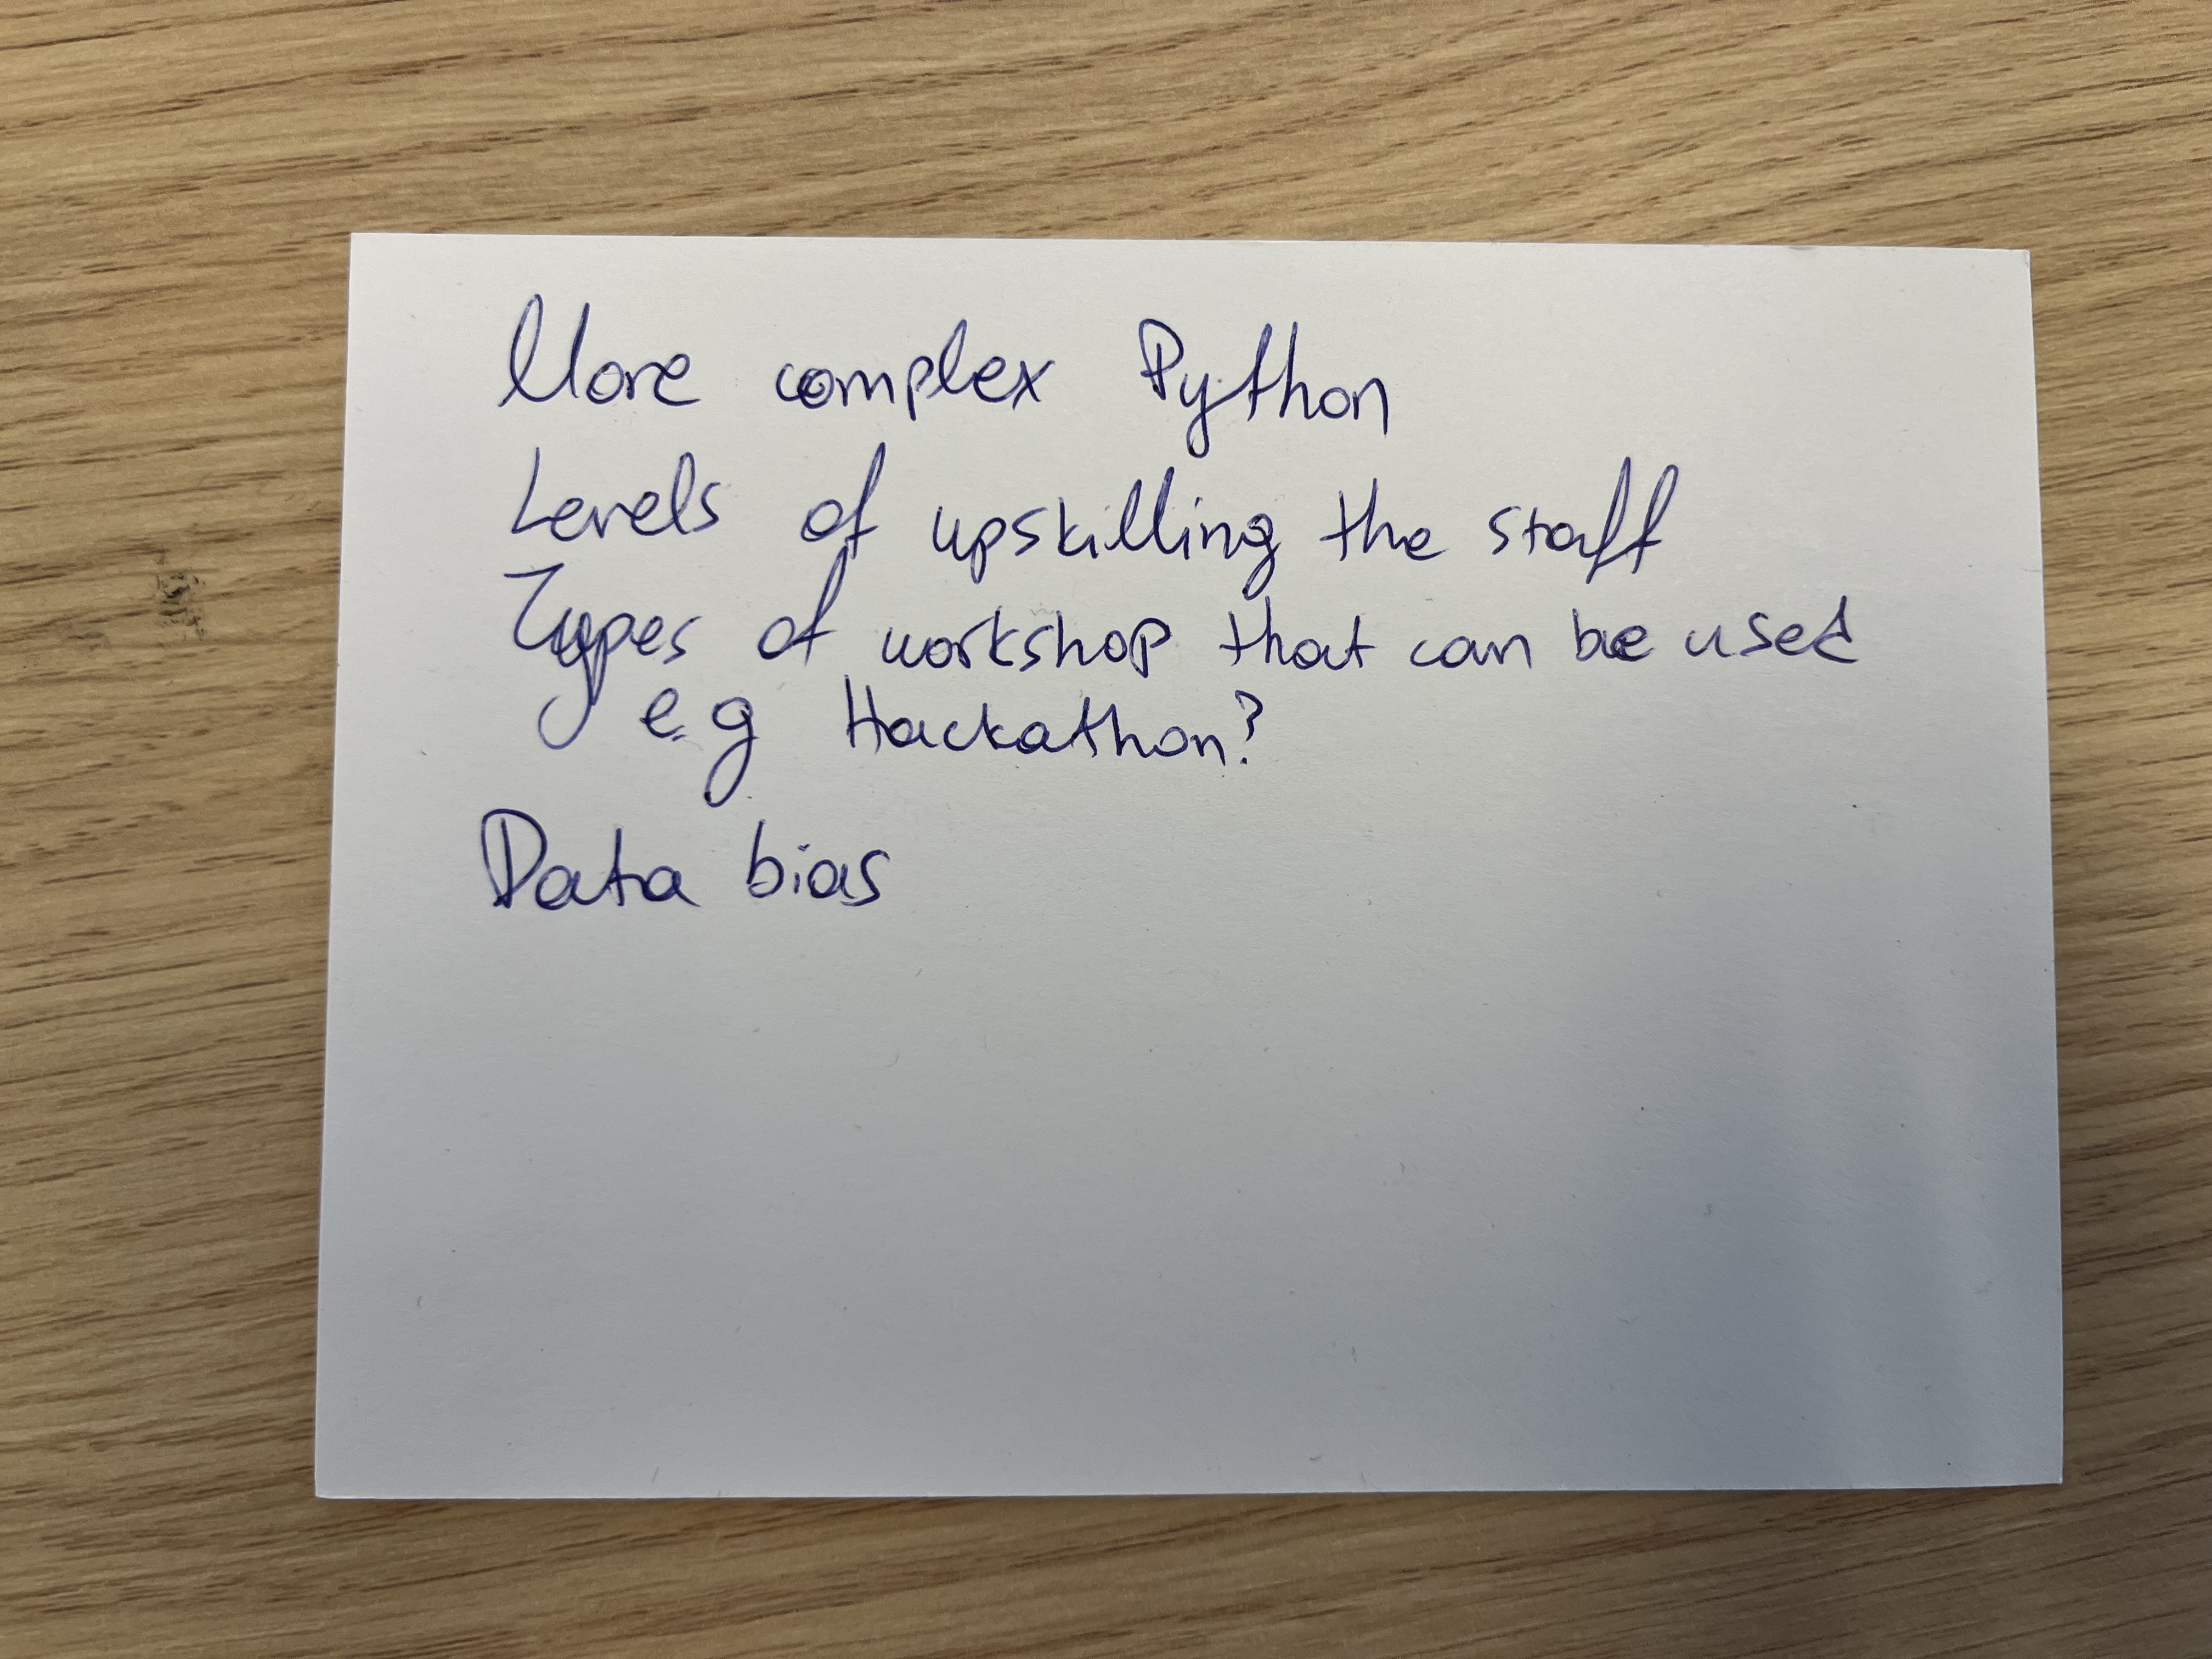 More complex Python
Levels of upskilling the staff
Types of workshop that can be used
e.g Hackathon?
Data bias